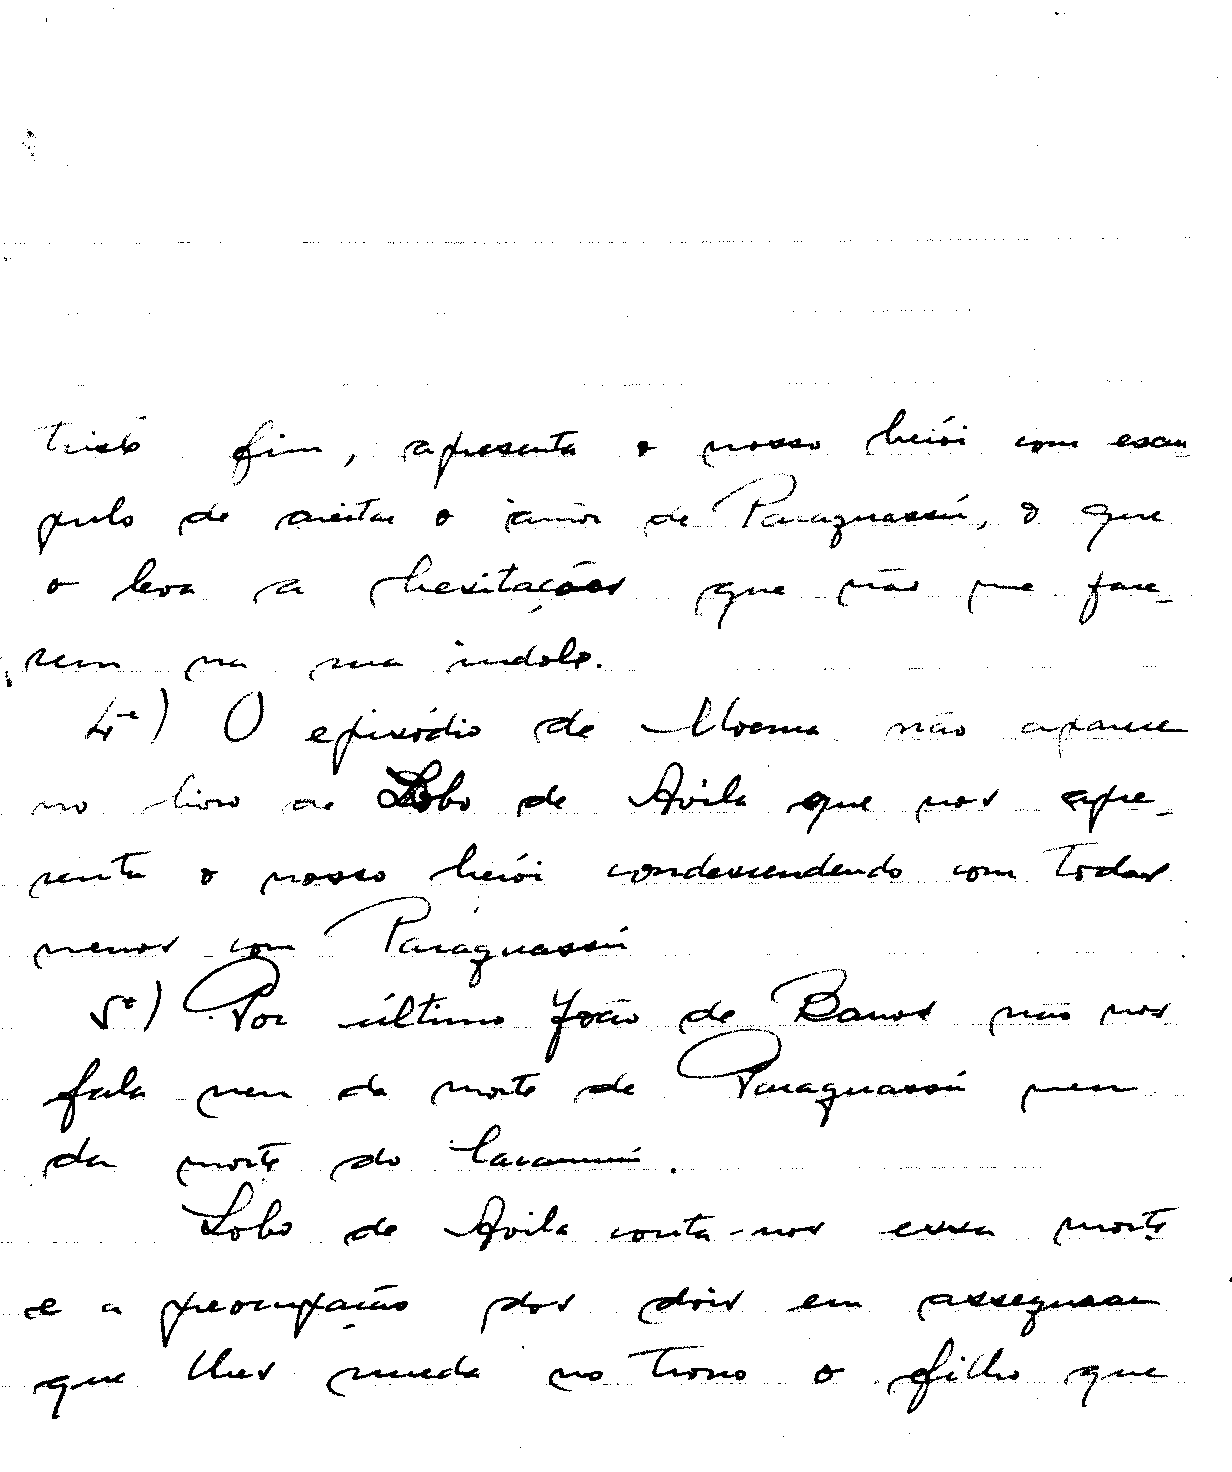 triste fim, apresenta o nosso herói com escru
pulo de aceitar o amor de Paraguassú, o que
o leva a hesitações que não me pare_
cem na sua indole.
4º) O episódio de Moema não aparece
no livro de Lobo de Avila que nos apre_
senta o nosso herói condescendendo com todas
menos com Paraguassú
5º) Por último João de Barros não nos
fala nem da morte de Paraguassú nem
da morte do Caramurú.
Lobo de Avila conta-nos essa morte
e a preocupação dos dois em assegurar
que lhes suceda no trono o filho que